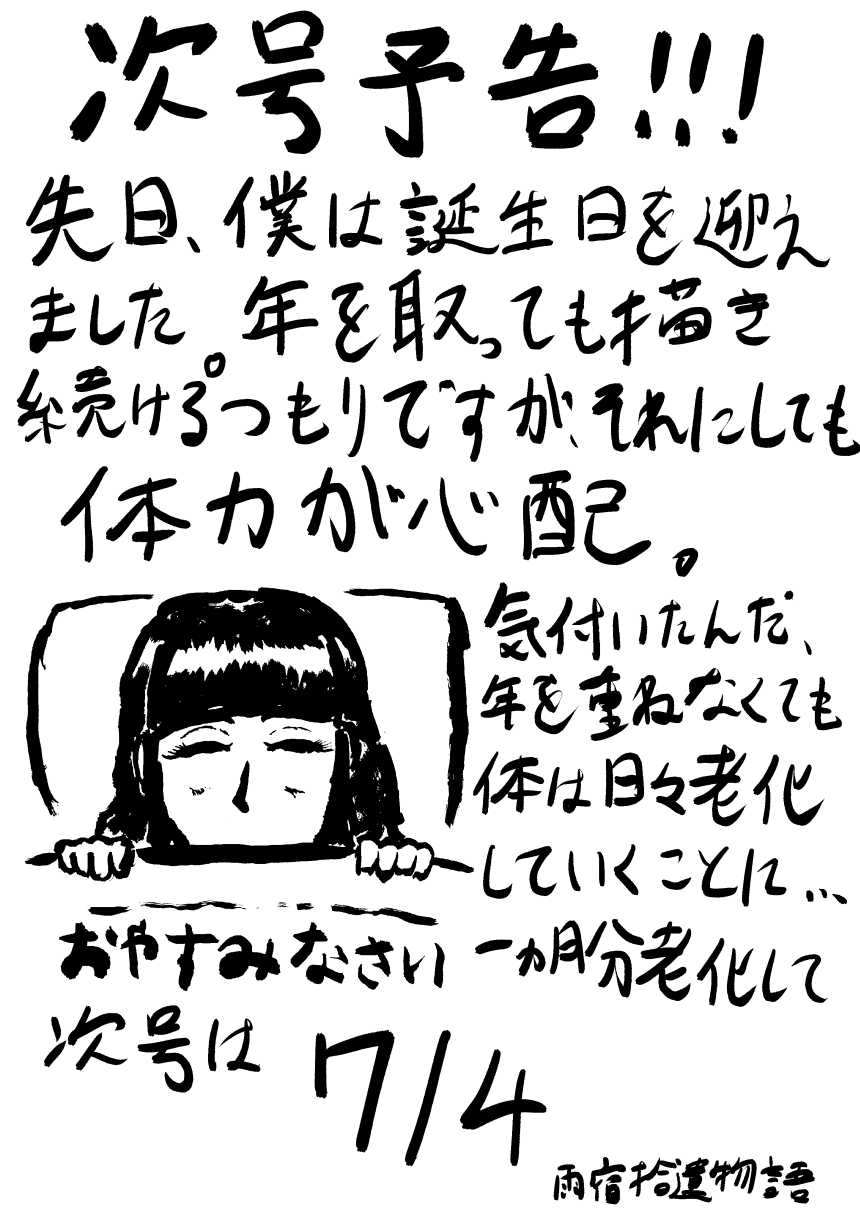 次号予告!!!
先日、僕は誕生日を迎え
ました。年を取っても描き
続けるつもりですが、それにしても
体力が心配。
気付いたんだ、
年を重ねなくても
体は日々老化
していくことに...
一ヵ月分老化して
おやすみなさい
次号は 7/4
雨宿拾遺物語